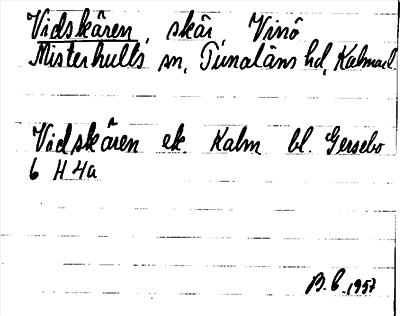 Vidskären, skär, Vinö
Misterhults sn, Tunaläns hd, Kalmar l.
Vidskären ek. Kalm bl. Gersebo
6 H 4a
B.E. 1957